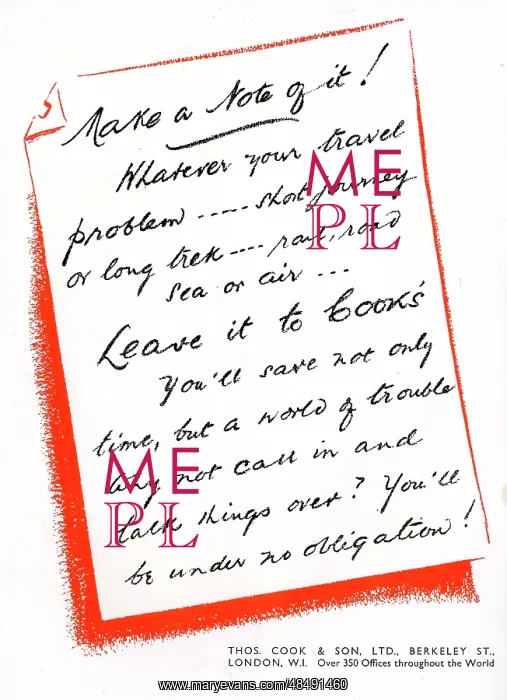 Make a Note of it!
Whatever your travel
problem ----- short journey
or long trek ---- rail, road
sea or air ...
Leave it to Cook's
You'll save not only
time, but a world of trouble
Why not call in and
talk things over? You'll
be under no obligation!
ME
PL
ME
PL
THOS. COOK & SON, LTD., BERKELEY ST.,
LONDON, W.I. Over 350 Offices throughout the World
www.maryevans.com/48491460